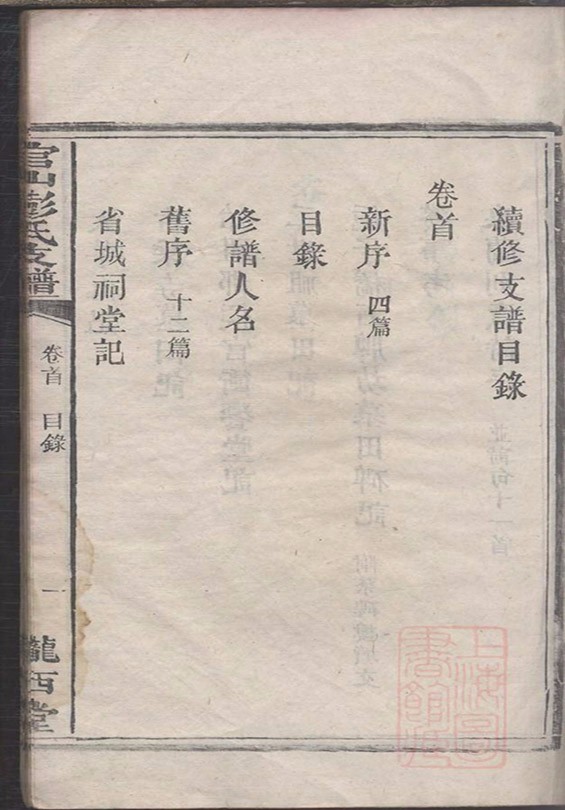 續修支譜目錄
卷首
新序 四篇
目錄
修譜人名
舊序 十二篇
省城祠堂記
官山彭氏支譜
卷首 目錄
一
隴西堂
上海圖
書館藏